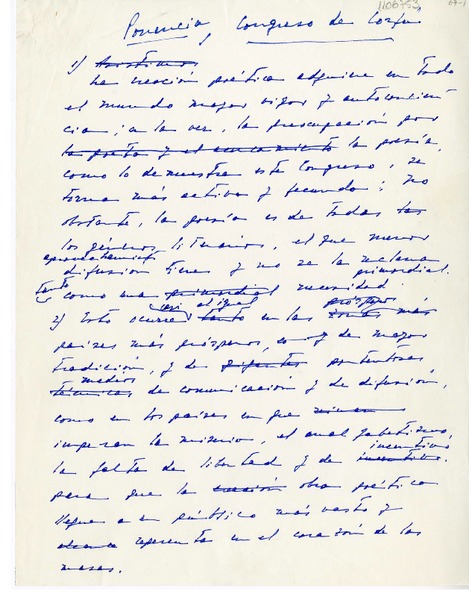 1106753
Ponencia, Congreso de Corfu
1)
La creación poética adquiere en todo
el mundo mayor vigor y autoconcien
cia; a la vez, la preocupación por
la poeta y el la poesía,
como lo demuestra este Congreso, se
torna más activa y fecunda; no
obstante, la poesía es de todas las
los géneros literarios, el que menor
aprovechamiento
difusión tiene y no se la reclama
tanto primordial.
como una primordial necesidad
casi al igual prósperos
2) Esto ocurre tanto en las más
países más prósperos, y de mayor
tradición, y de portentosos
medios
técnicas de comunicación y de difusión,
como en los países en que
imperan la miseria, el analfabetismo,
incentivo
la falta de libertad y de incentivo.
para que la creación obra poética
llegue a un público más vasto y
alcance repercuta en el corazón de las
masas.